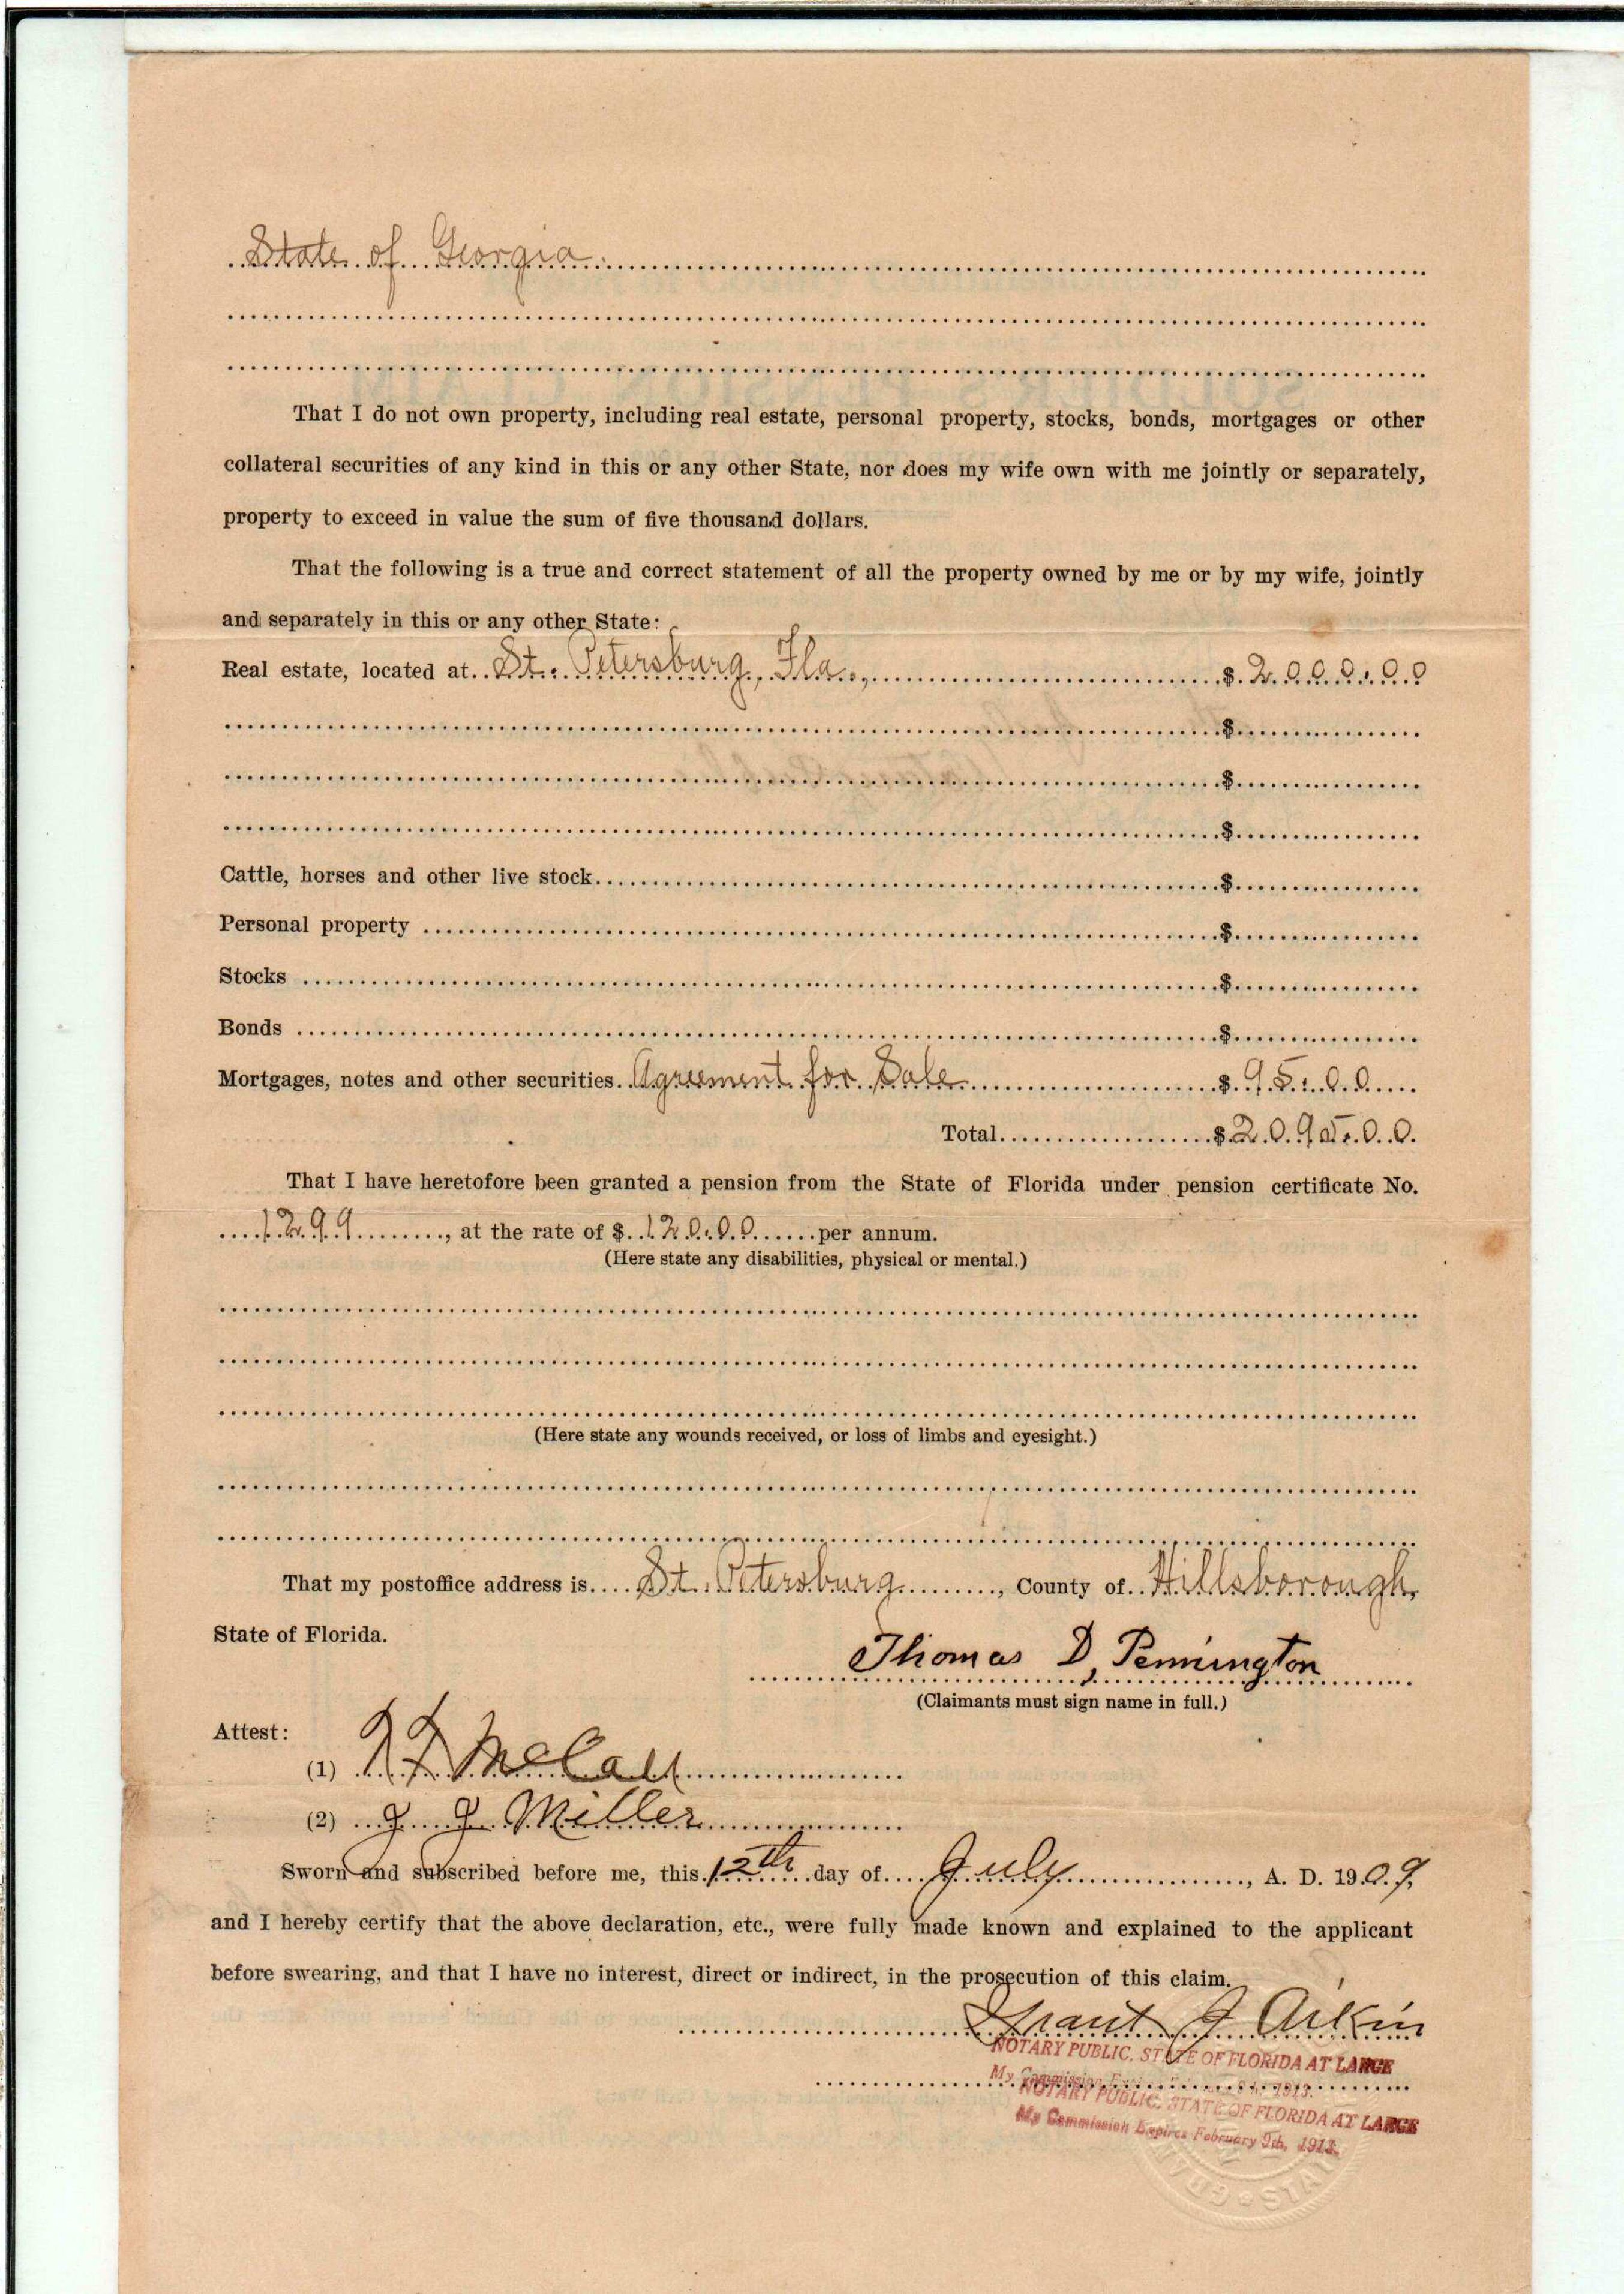 State of Georgia.
That I do not own property, including real estate, personal property, stocks, bonds, mortgages or other
collateral securities of any kind in this or any other State, nor does my wife own with me jointly or separately,
property to exceed in value the sum of five thousand dollars.
That the following is a true and correct statement of all the property owned by me or by my wife, jointly
and separately in this or any other State:
Real estate, located at St. Petersburg, Fla., $2000.00
$
$
$
Cattle, horses and other live stock $
Personal property $
Stocks $
Bonds $
Mortgages, notes and other securities. Agreement for Sale $95.00
Total $2095.00
That I have heretofore been granted a pension from the State of Florida under pension certificate No.
1299, at the rate of $120.00 per annum.
(Here state any disabilities, physical or mental.)
(Here state any wounds received, or loss of limbs and eyesight.)
That my postoffice address is St. Petersburg, County of Hillsborough,
State of Florida.
Thomas D, Pennington
(Claimants must sign name in full.)
Attest:
(1) McCall
(2) J. J. Miller
Sworn and subscribed before me, this 12th day of July, A. D. 1909,
and I hereby certify that the above declaration, etc., were fully made known and explained to the applicant
before swearing, and that I have no interest, direct or indirect, in the prosecution of this claim.
Grant J Aikin
NOTARY PUBLIC, STATE OF FLORIDA AT LARGE
My Commission 1913.
NOTARY PUBLIC, STATE OF FLORIDA AT LARGE
My Commission Expires February 9th, 1913.